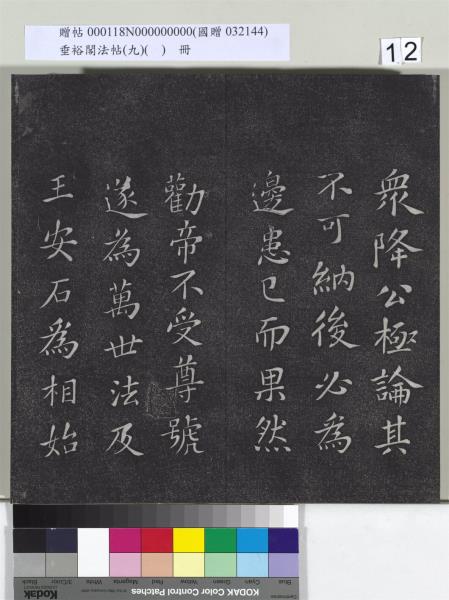 贈帖 000118N000000000(國贈 032144)
垂裕閣法帖(九)( ) 冊
12
衆降公極論其
不可納後必為
邊患已而果然
勸帝不受尊號
遂為萬世法及
王安石為相始
Blue Cyan Green Yellow Red Magenta White 3/Color Black
Kodak
KODAK Color Control Patches